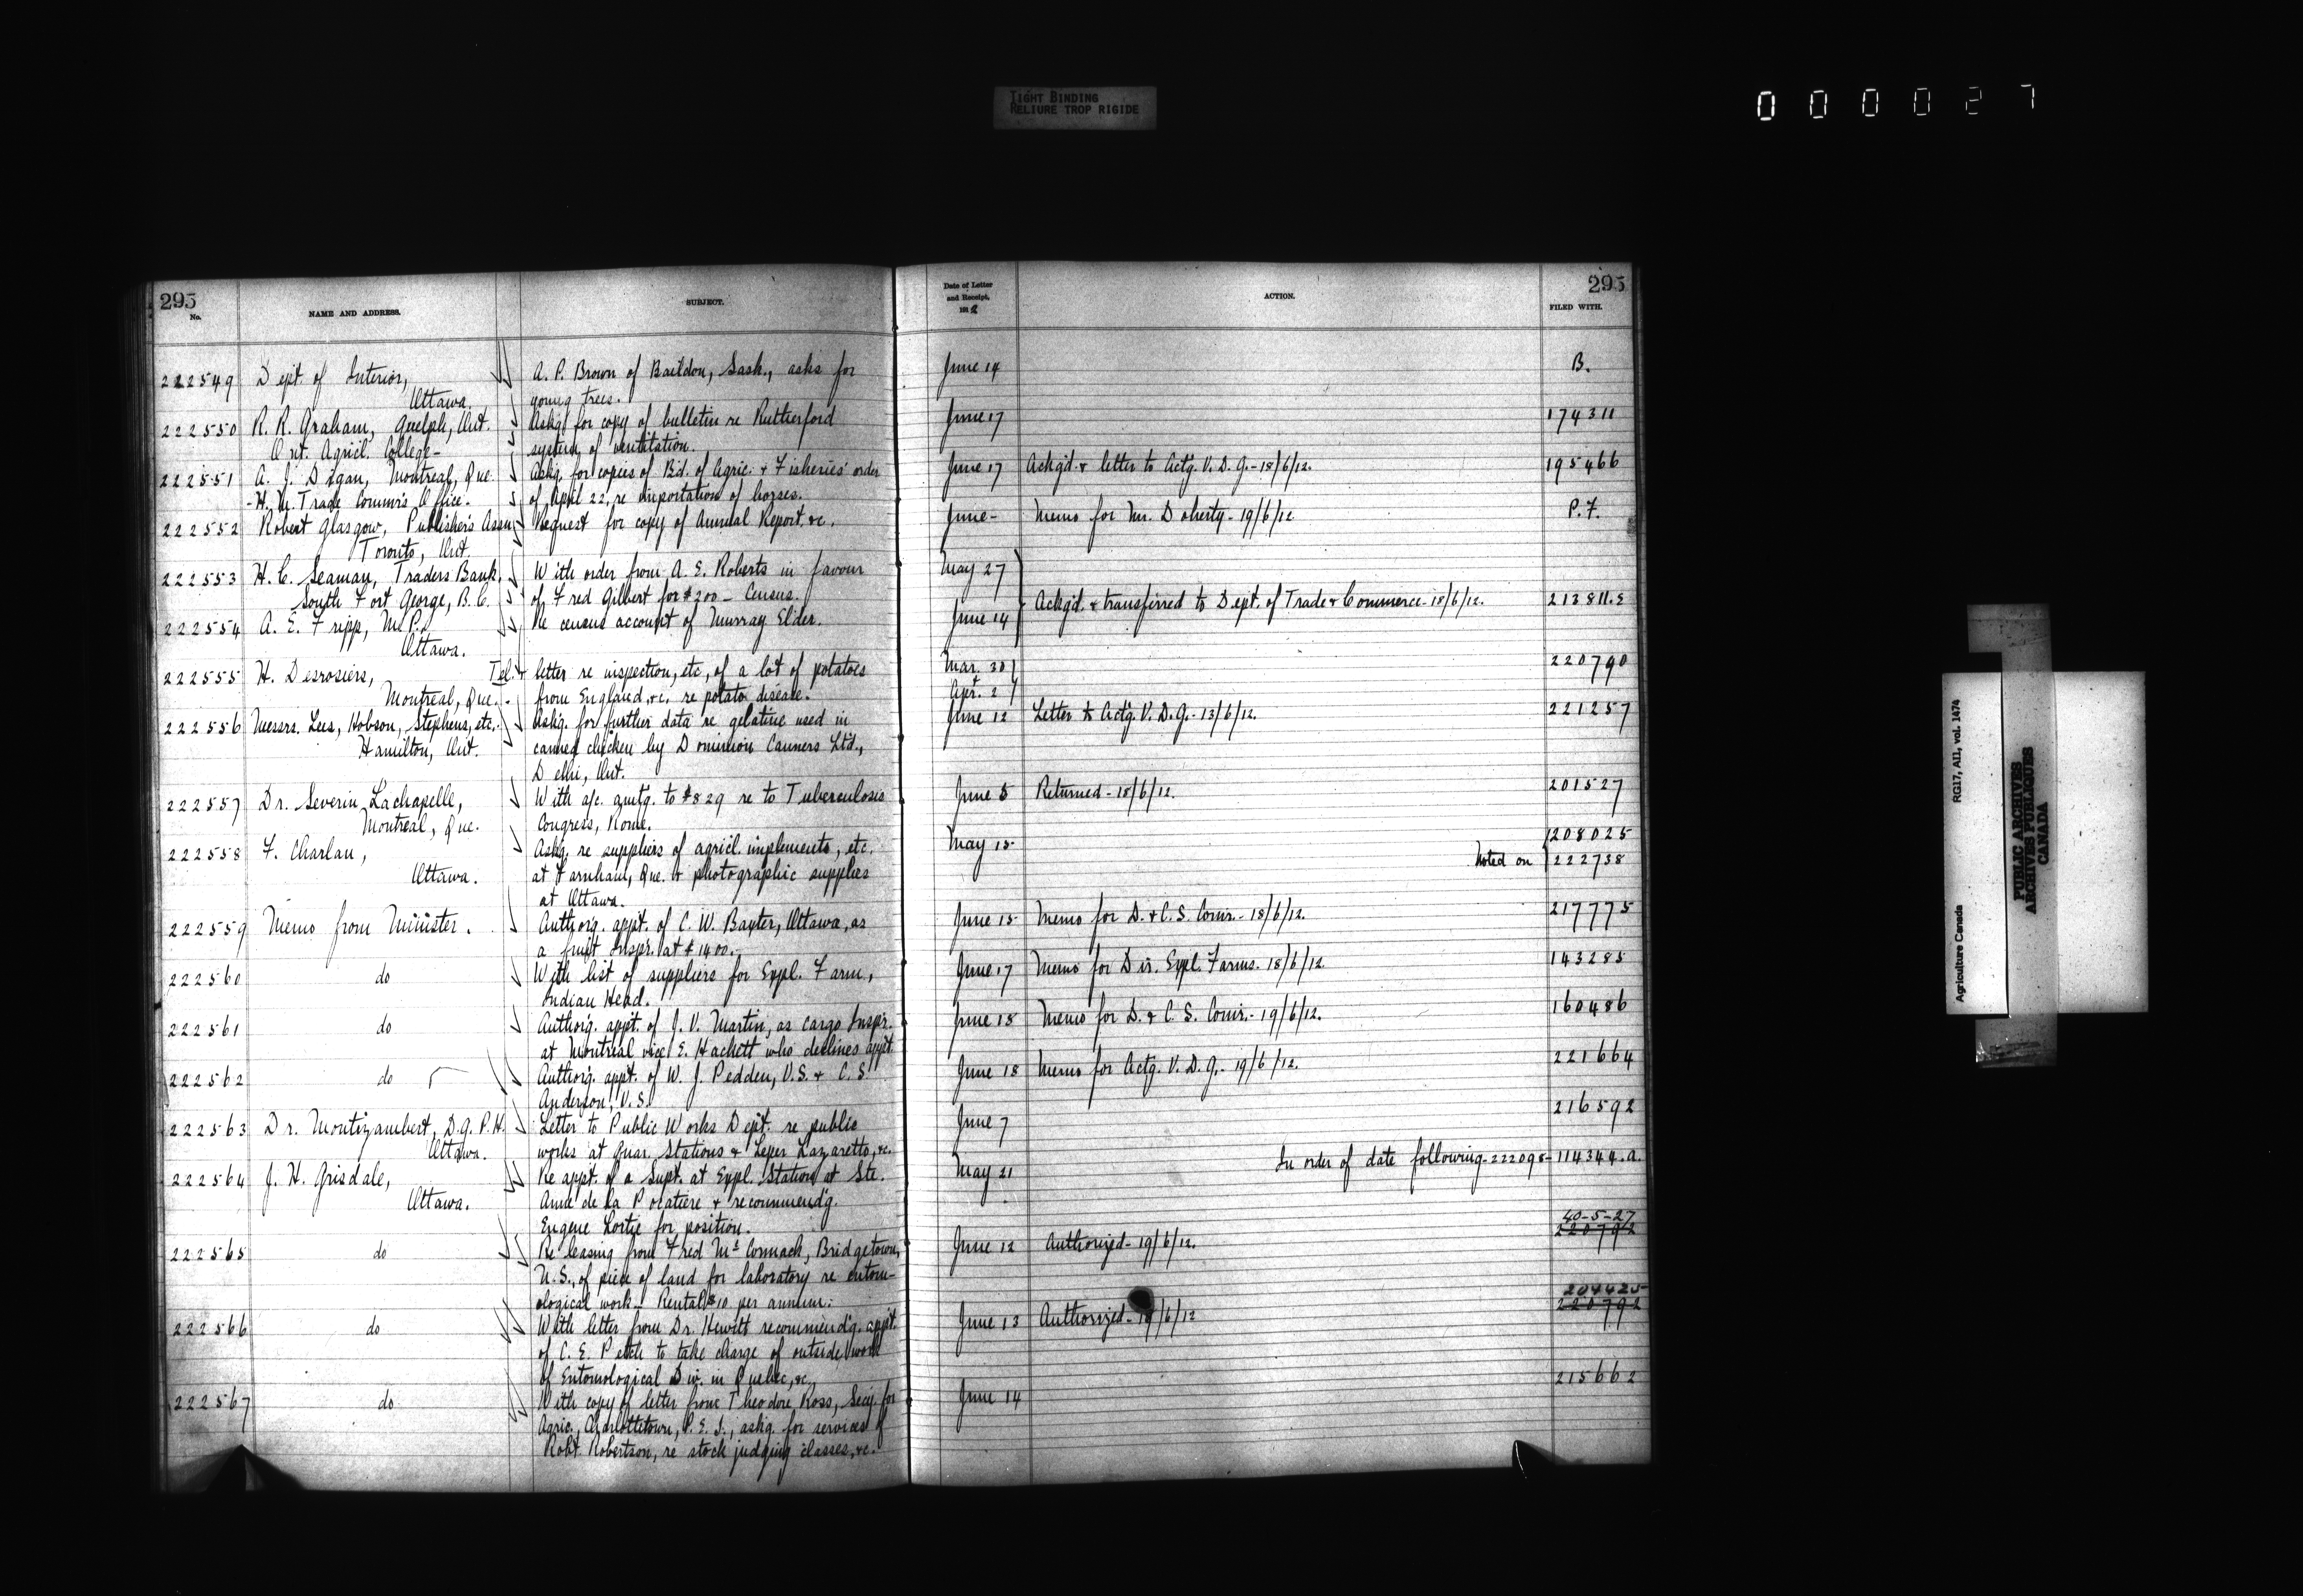 TIGHT BINDING
RELIURE TROP RIGIDE
000027
295
No.
NAME AND ADDRESS.
SUBJECT.
Date of Letter
and Receipt,
1912
ACTION.
295
FILED WITH.
222549 Dept. of Interior, A. P. Brown of Baildon, Sask., asks for June 14 B.
Ottawa. young trees.
222550 R. R. Graham, Guelph, Ont. Askg. for copy of bulletin re Rutherford June 17 174311
Ont. Agricl. College- system of ventilation.
222551 A. J. Digan, Montreal, Que. Askg. for copies of Bd. of Agric. & Fisheries' order June 17 Ackg'd. & letter to Actg. V. D. G. - 18/6/12. 195466
- H. M. Trade Commr's Office. of April 22, re importation of horses.
222552 Robert Glasgow, Publishers Assn. Request for copy of Annual Report, &c. June - Memo for Mr. Doherty - 19/6/12 P. F.
Toronto, Ont.
222553 H. C. Seaman, Traders Bank, With order from A. E. Roberts in favour May 27
South Fort George, B. C. of Fred Gilbert for $200 - Census. Ackg'd. & transferred to Dept. of Trade & Commerce - 18/6/12. 213811.S
222554 A. E. Fripp, M. P., Re census account of Murray Elder. June 14
Ottawa.
222555 H. Desrosiers, Tel. & letter re inspection, etc, of a lot of potatoes Mar. 30 220790
Montreal, Que. from England, &c, re potato disease. & Apr. 2
222556 Messrs. Lees, Hobson, Stephens, etc. Askg. for further data re gelatine used in June 12 Letter to Actg. V. D. G. - 13/6/12. 221257
Hamilton, Ont. canned chicken by Dominion Canners Ltd.,
Delhi, Ont.
222557 Dr. Severin Lachapelle, With a/c. amtg. to $829 re to Tuberculosis June 5 Returned - 18/6/12. 201527
Montreal, Que. Congress, Rome.
222558 F. Charlau, Askg. re suppliers of agricl. implements, etc. May 15 208025
Ottawa. at Farnham, Que. & photographic supplies Noted on 222738
at Ottawa.
222559 Memo from Minister. Authorg. appt. of C. W. Baxter, Ottawa, as June 15 Memo for D. & C. S. Comr. - 18/6/12. 217775
a fruit Inspr. at $1400.
222560 do With list of suppliers for Expl. Farm, June 17 Memo for Dir. Expl. Farms. 18/6/12. 143285
Indian Head.
222561 do Authorg. appt. of J. V. Martin, as cargo Inspr. June 18 Memo for D. & C. S. Comr. - 19/6/12. 160486
at Montreal vice E. Hackett who declines appt.
222562 do Authorg. appt. of W. J. Pedden, V.S. & C. S. June 18 Memo for Actg. V. D. G. - 19/6/12. 221664
Anderson, V. S.
222563 Dr. Montizambert, D.G.P.H. Letter to Public Works Dept. re public June 7 216592
Ottawa. works at Quar. Stations & Leper Lazaretto, &c.
222564 J. H. Grisdale, Re appt. of a Supt. at Expl. Station at Ste. May 21 In order of date following - 222098 - 114344.a.
Ottawa. Anne de la Pocatiere & recommend'g.
Eugene Lortie for position.
40-5-27
222565 do Re leasing from Fred McCormack, Bridgetown, June 12 Authorized - 19/6/12. 220792
N. S., of piece of land for laboratory re entom-
ological work - Rental $10 per annum.
204425
222566 do With letter from Dr. Hewitt recommend'g. appt. June 13 Authorized - 19/6/12 220792
of C. E. Petch to take charge of outside work
of Entomological Div. in Quebec, &c.
222567 do With copy of letter from Theodore Ross, Secy. for June 14 215662
Agric., Charlottetown, P. E. I., askg. for services of
Robt. Robertson, re stock judging classes, &c.
Agriculture Canada
RG17, AII, vol. 1474
PUBLIC ARCHIVES
ARCHIVES PUBLIQUES
CANADA